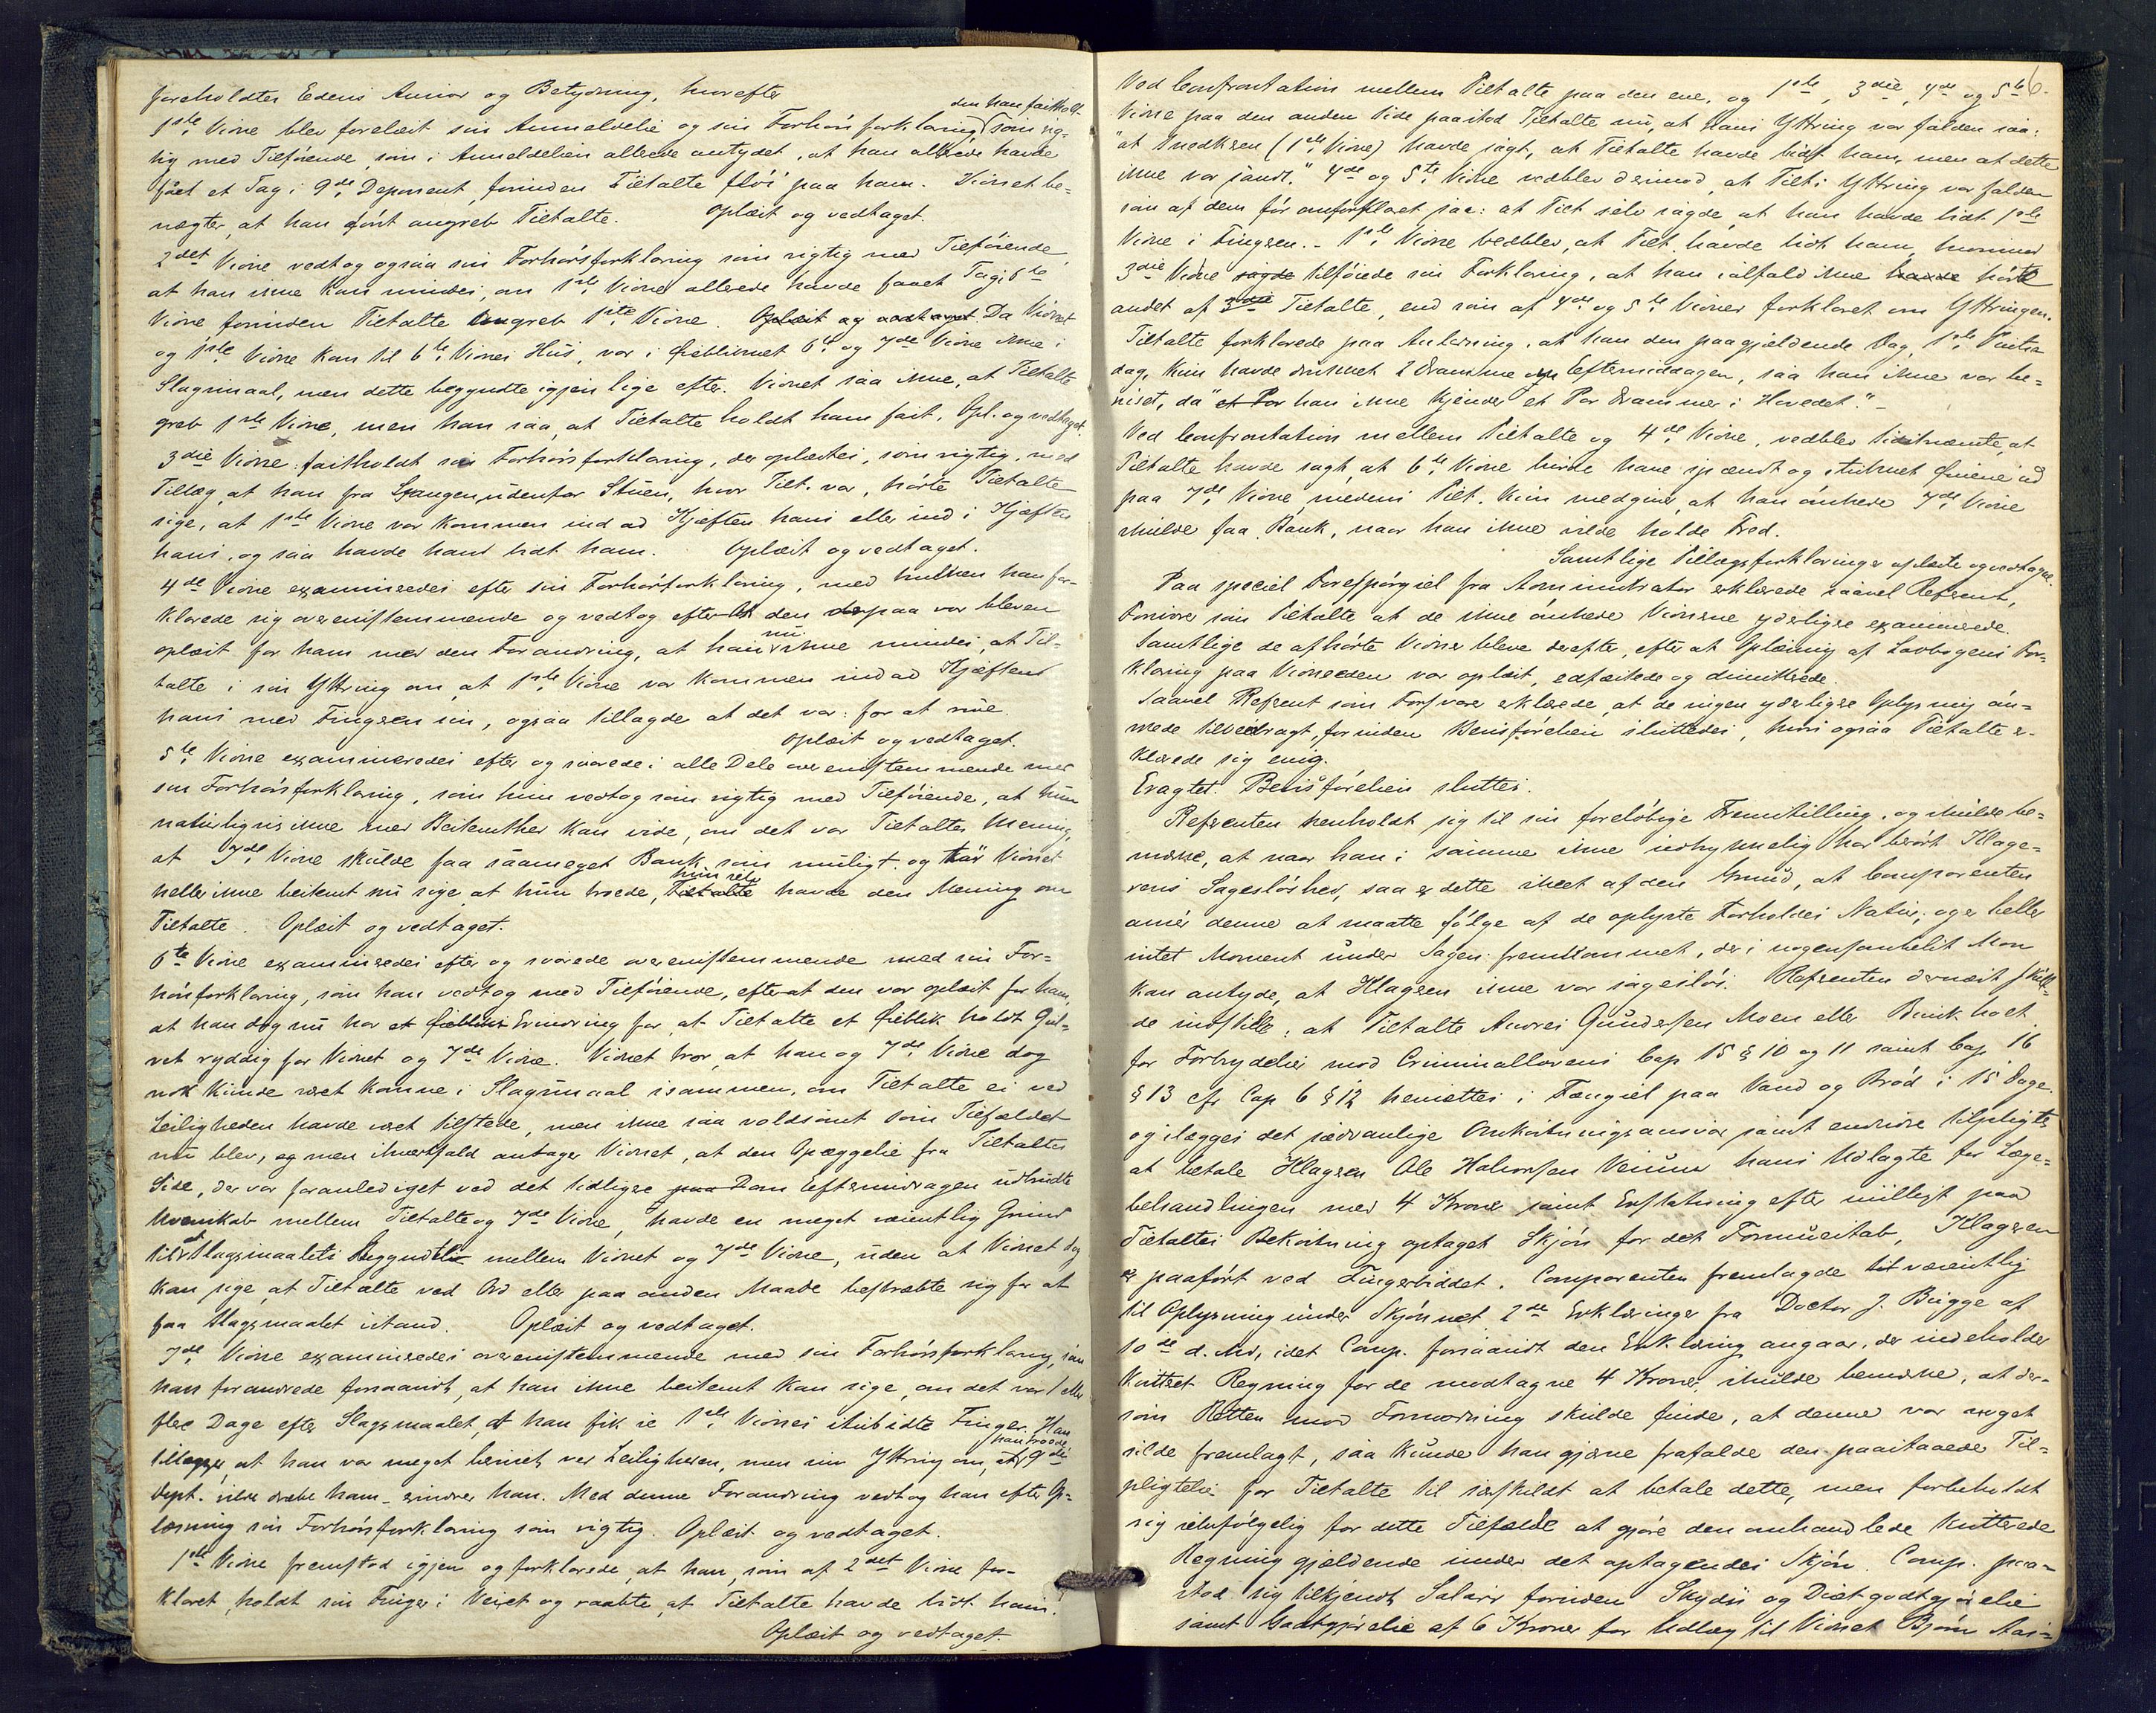 foreholdtes Edens Ansvar og Betydning, hvorefter
1ste Vidne blev forelæst sin Anmeldelse og sin Forhørsforklaring, den han fastholdt som rig-
tig med Tilføiende som i Anmeldelsen allerede antydet, at han allerede havde
fået et Tag i 9de Deponent, forinden Tiltalte fløi paa ham. Vidnet be-
nægter, at han først angreb Tiltalte. Oplæst og vedtaget.
2det Vidne vedtog ogsaa sin Forhørsforklaring som rigtig med Tilføiende,
at han ikke kan mindes, om 1ste Vidne allerede havde faaet Tag i 6te
Vidne forinden Tiltalte angreb 1ste Vidne. Oplæst og vedtaget Da Vidnet
og 1ste Vidne kom til 6te Vidnes Hus, var i Øieblikket 6te og 7de Vidne ikke i
Slagsmaal, men dette begyndte igjen lige efter. Vidnet saa ikke, at Tiltalte
greb 1ste Vidne, men han saa, at Tiltalte holdt ham fast. Opl. og vedtaget.
3die Vidne fastholdt sin Forhørsforklaring, der oplæstes, som rigtig, med
Tillæg, at han fra Gangen udenfor Stuen, hvor Tilt. var, hørte Tiltalte
sige, at 1ste Vidne var kommen ind ad Kjæften hans eller ind i Kjæften
hans, og saa havde hans bidt ham. Oplæst og vedtaget.
4de Vidne examineredes efter sin Forhørsforklaring, med hvilken han for-
klarede sig overensstemmende og vedtog efter at den derpaa var bleven
oplæst for ham med den Forandring, at han nu ikke mindes, at Til-
talte i sin Yttring om, at 1ste Vidne var kommen ind ad Kjæften
hans med Fingeren sin, ogsaa tillagde at det var: for at rive.
Oplæst og vedtaget.
5te Vidne examineredes efter og svarede i alle Dele overensstemmende med
sin Forhørsforklaring, som hun vedtog som rigtig med Tilføiende, at hun
naturligvis ikke med Bestemthed kan vide, om det var Tiltaltes Mening,
at 7de Vidne skulde faa saameget Bank som muligt og tør Vidnet
heller ikke bestemt nu sige, at hun troede, Tiltalte hun selv havde den Mening om
Tiltalte. Oplæst og vedtaget.
6te Vidne examineredes efter og svarede overensstemmende med sin For-
hørsforklaring, som han vedtog med Tilføiende, efterat den var oplæst for ham,
at han dog nu har et Øiebliks Erindring for, at Tiltalte et Øieblik holdt Gul-
vet ryddig for Vidnet og 7de Vidne. Vidnet tror, at han og 7de Vidne dog
nok kunde være komne i Slagsmaal isammen, om Tiltalte ei ved
Leiligheden havde været tilstede, men ikke saa voldsomt som Tilfældet
nu blev, og men ihvertfald antager Vidnet, at den Opæggelse fra Tiltaltes
Side, der var foranlediget ved det tidligere paa Dan Eftermiddagen udbrudte
Uvenskab mellem Tiltalte og 7de Vidne, havde en meget væsentlig Grund
til at Slagsmaalets Begyndte mellem Vidnet og 7de Vidne, uden at Vidnet dog
kan sige, at Tiltalte ved Ord eller paa anden Maade bestræbte sig for at
faa Slagsmaalet istand. Oplæst og vedtaget.
7de Vidne examineredes overensstemmende med sin Forhørsforklaring, som
han forandrede forsaavidt, at han ikke bestemt kan sige, om det var 1 eller
flere Dage efter Slagsmaalet, at han fik se 1ste Vidnes itubidte Finger. Han
tillægger, at han var meget beruset ved Leiligheden, men sin Yttring om, at han troede 9de
Dept. vilde dræbe ham, erindrer han. Med denne Forandring vedtog han efter Op-
læsning sin Forhørsforklaring som rigtig. Oplæst og vedtaget.
1ste Vidne fremstod igjen og forklarede, at han, som af 2det Vidne for-
klaret, holdt sin Finger i Veiret og raabte, at Tiltalte havde bidt ham.
Oplæst og vedtaget.
6.
Ved Confrontation mellem Tiltalte paa den ene, og 1ste, 3die, 4de og 5te
Vidne paa den anden Side paastod Tiltalte nu, at hans Yttring var falden saa:
"at Knedksen (1ste Vidne) havde sagt, at Tiltalte havde bidt ham, men at dette
ikke var sandt." 4de og 5te Vidne vedblev derimod, at Tilt.s Yttring var falden
som af dem før omforklaret saa: at Tilt selv sagde, at han havde bidt 1ste
Vidne i Fingeren. - 1ste Vidne vedblev, at Tilt. havde bidt ham, hvorimod
3die Vidne sagde tilføiede sin Forklaring, at han ialfald ikke havde hørte
andet af 3die Tiltalte, end som af 4de og 5te Vidner forklaret om Yttringen.
Tiltalte forklarede paa Anledning, at han den paagjældende Dag, 1ste Pintse-
dag, kun havde drukket 2 Dramme om Eftermiddagen, saa han ikke var be-
ruset, da "et Par han ikke kjender et Par Drammer i Hovedet." -
Ved Confrontation mellem Tiltalte og 4de Vidne, vedblev Sidstnævnte, at
Tiltalte havde sagt, at 6te Vidne burde have spændt og stukket Øinene ud
paa 7de Vidne, medens Tilt. kun medgiver, at han ønskede 7de Vidne
skulde faa Bank, naar han ikke vilde holde Fred.
Samtlige Tillægsforklaringer oplæste og vedtagne.
Paa speciel Forespørgsel fra Administrator erklærede saavel Referent,
Forsvarer som Tiltalte at de ikke ønskede Vidnerne yderligere examinerede.
Samtlige de afhørte Vidner bleve derefter, efter at Oplæsning af Lovbogens For-
klaring paa Vidneeden var oplæst, edfæstede og dimitterede.
Saavel Referent som Forsvarer erklærede, at de ingen yderligere Oplysning øn-
skede tilveiebragt, forinden Bevisførelsen sluttedes, hvori ogsaa Tiltalte er-
klærede sig enig.
Eragtet. Bevisførelsen sluttes.
Referenten henholdt sig til sin foreløbige Fremstilling, og skulde be-
mærke, at naar han i samme ikke udtrykkelig har berørt Klage-
rens Sagesløshed, saa er dette skeet af den Grund, at Comparenten
ansér denne at maatte følge af de oplyste Forholdes Natur, og er heller
intet Moment under Sagen fremkommet, der i nogensomhelst Mon
kan antyde, at Klageren ikke var sagesløs. Referenten dernæst skul-
de indstille, at Tiltalte Andres Gundersen Moen eller Binkholt
for Forbrydelser mod Criminallovens Cap 15 § 10 og 11 samt Cap 16
§ 13 cfr Cap 6 § 12 hensættes i Fængsel paa Vand og Brød i 15 Dage
og ilægges det sædvanlige Omkostningsansvar samt endvidre tilpligtes
at betale Klageren Ole Halvorsen Veium hans Udlagte for Læge-
behandlingen med 4 Kroner samt Erstatning efter muligst paa
Tiltaltes Bekostning optaget Skjøn for det Formuestab, Klageren
er paaført ved Fingerbiddet. Comparenten fremlagde til væsentlig
til Oplysning under Skjønnet 2de Erklæringer fra Doctor J. Bugge af
10de d. Md, idet Comp. forsaavidt den Erklæring angaar, der indeholder
kvittret Regning for de modtagne 4 Kroner, skulde bemærke, at der-
som Retten mod Formodning skulde finde, at denne var noget
silde fremlagt, saa kunde han gjerne frafalde den paastaaede Til-
pligtelse for Tiltalte til særskildt at betale dette, men forbeholdt
sig selvfølgelig for dette Tilfælde at gjøre den omhandlede kvitterede
Regning gjældende under det optagendes Skjøn. Comp. paa-
stod sig tilkjendt Salair foruden Skyds og Diætgodtgjørelse
samt Godtgjørelse af 6 Kroner for Udlæg til Vidnet Bjørn Aas-